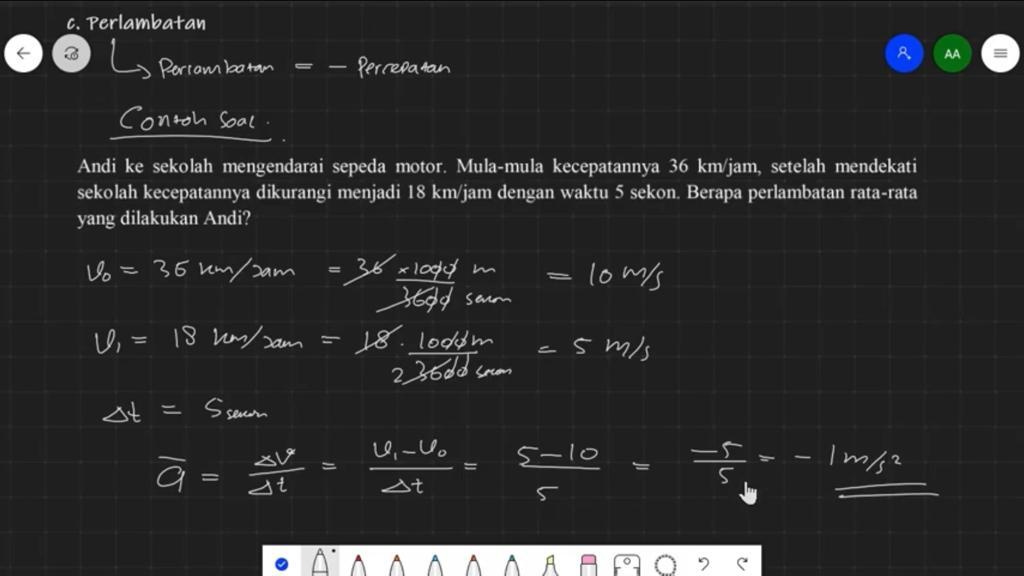 c. Perlambatan
Perlambatan = - Percepatan
Contoh Soal.
Andi ke sekolah mengendarai sepeda motor. Mula-mula kecepatannya 36 km/jam, setelah mendekati
sekolah kecepatannya dikurangi menjadi 18 km/jam dengan waktu 5 sekon. Berapa perlambatan rata-rata
yang dilakukan Andi?
v₀ = 36 km/jam = 36 × 1000 m / 3600 sekon = 10 m/s
v₁ = 18 km/jam = 18 . 1000 m / 2 3600 sekon = 5 m/s
Δt = 5 sekon
a̅ = Δv/Δt = v₁ - v₀ / Δt = 5 - 10 / 5 = -5/5 = - 1 m/s²
AA